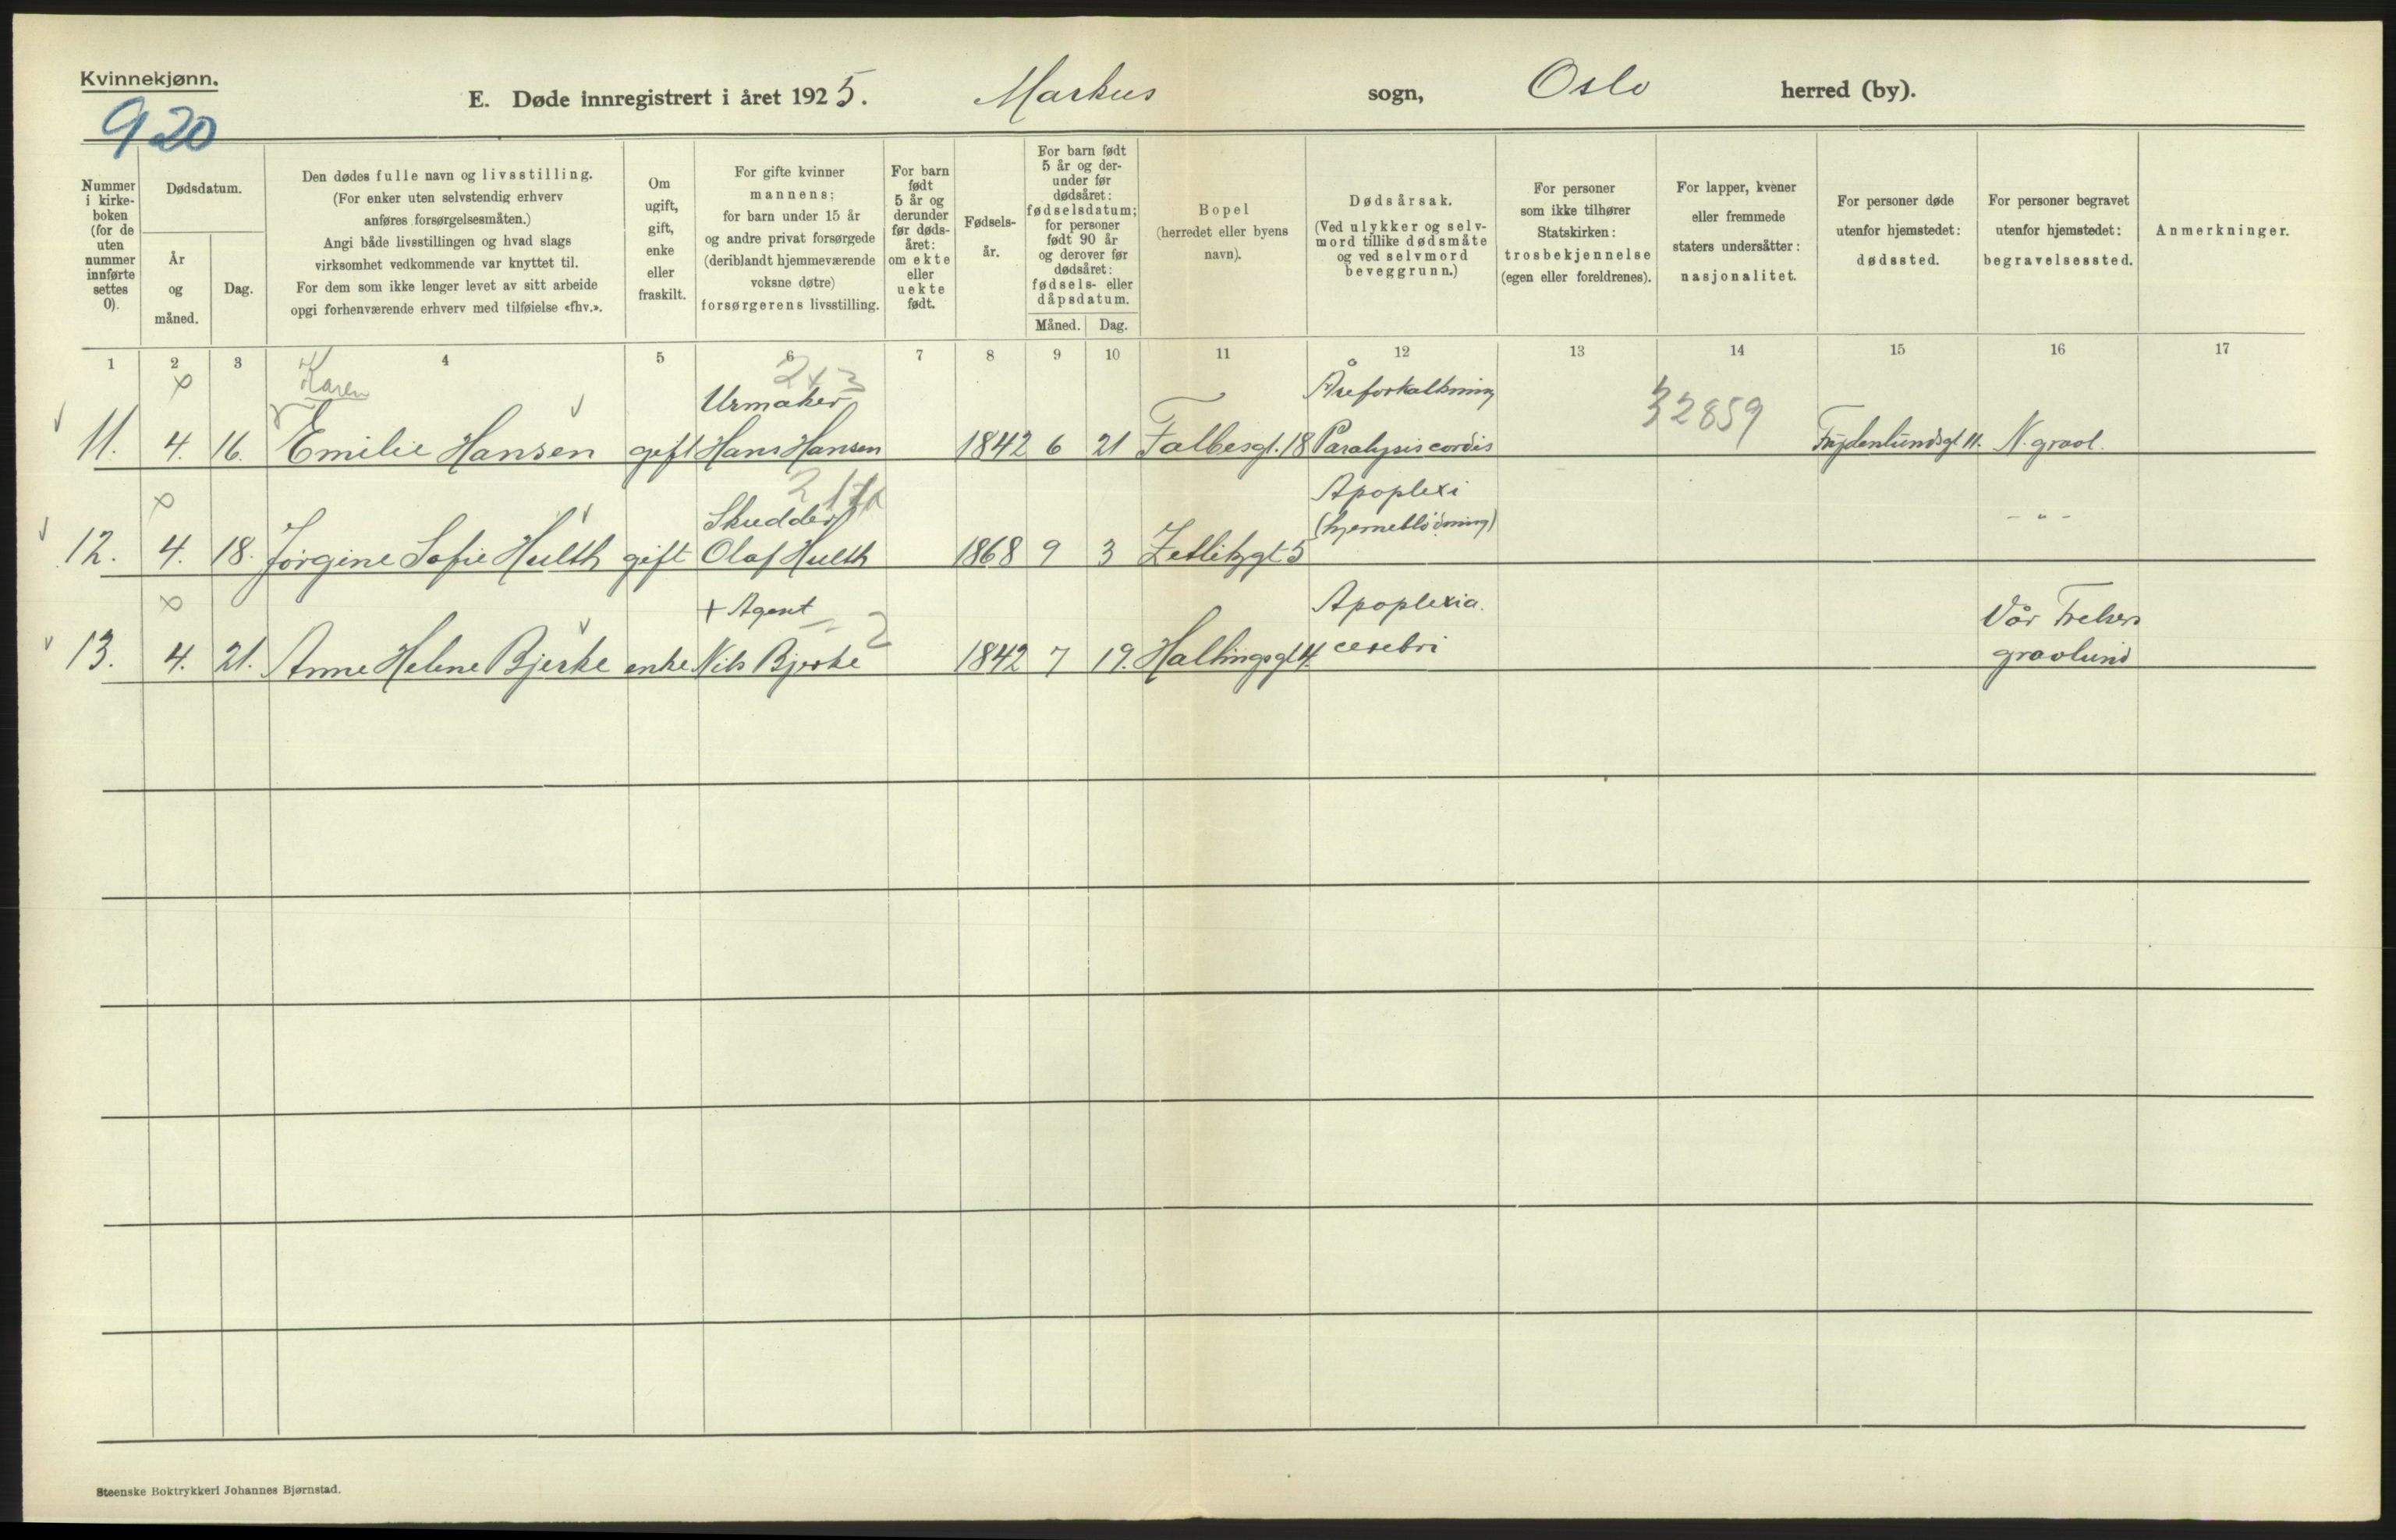 Kvinnekjønn.
920
E. Døde innregistrert i året 1925. Markus sogn, Oslo herred (by).
Nummer i kirke- boken (for de uten nummer innførte settes 0).
Dødsdatum.
År og måned.
Dag.
Den dødes fulle navn og livsstilling.
(For enker uten selvstendig erhverv
anføres forsørgelsesmåten.)
Angi både livsstillingen og hvad slags
virksomhet vedkommende var knyttet til.
For dem som ikke lenger levet av sitt arbeide
opgi forhenværende erhverv med tilføielse «fhv.».
Om
ugift,
gift,
enke
eller
fraskilt.
For gifte kvinner
mannens;
for barn under 15 år
og andre privat forsørgede
(deriblandt hjemmeværende
voksne døtre)
forsørgerens livsstilling.
For barn
født
5 år og
derunder
før døds-
året:
om ekte
eller
uekte
født.
Fødsels-
år.
For barn født
5 år og der-
under før
dødsåret:
fødselsdatum;
for personer
født 90 år
og derover før
dødsåret:
fødsels- eller
dåpsdatum.
Måned. Dag.
Bopel
(herredet eller byens
navn).
Dødsårsak.
(Ved ulykker og selv-
mord tillike dødsmåte
og ved selvmord
beveggrunn.)
For personer
som ikke tilhører
Statskirken:
trosbekjennelse
(egen eller foreldrenes).
For lapper, kvener
eller fremmede
staters undersåtter:
nasjonalitet.
For personer døde
utenfor hjemstedet:
dødssted.
For personer begravet
utenfor hjemstedet:
begravelsessted.
Anmerkninger.
1 2 3 4 5 6 7 8 9 10 11 12 13 14 15 16 17
Karen
Urmaker
Åreforkalkning
32859
11. 4. 16. Emilie Hansen gift Hans Hansen 1842 6 21 Falbesgt. 18 Paralysis cordis Frydenlundsgt 11. N. gravl.
Skredder
Apoplexi
(hjerneblødning)
12. 4. 18. Jørgine Sofie Hulth gift Olaf Hulth 1868 9 3 Zetlitzgt 5 - " -
+ Agent 2
Apoplexia
Vår Frelsers
13. 4. 21. Anne Helene Bjerke enke Nils Bjerke 1842 7 19. Hallingsgt 4. cerebri gravlund
Steenske Boktrykkeri Johannes Bjørnstad.